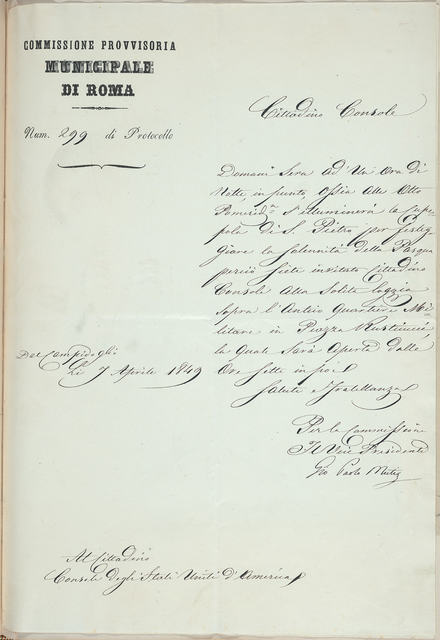 COMMISSIONE PROVVISORIA
MUNICIPALE
DI ROMA
Num. 299 di Protocollo
Cittadino Console
Domani Sera ad Un Ora di
Notte, in punto, ossia alle Otto
Pomerid.ne S'illuminerà la Cup-
pola di S. Pietro per festeg-
giare la Solennità della Pasqua
perciò siete invitato Cittadino
Console alla Solita loggia
sopra l'Antico Quartiere Mi-
litare in Piazza Rusticucci,
la quale sarà aperta dalle
Ore sette in poi
Salute e Fratellanza
Dal Campidoglio
Li 7 Aprile 1849
Per la Commissione
Il Vice Presidente
Gio Paolo
Al Cittadino
Console degli Stati Uniti d'America